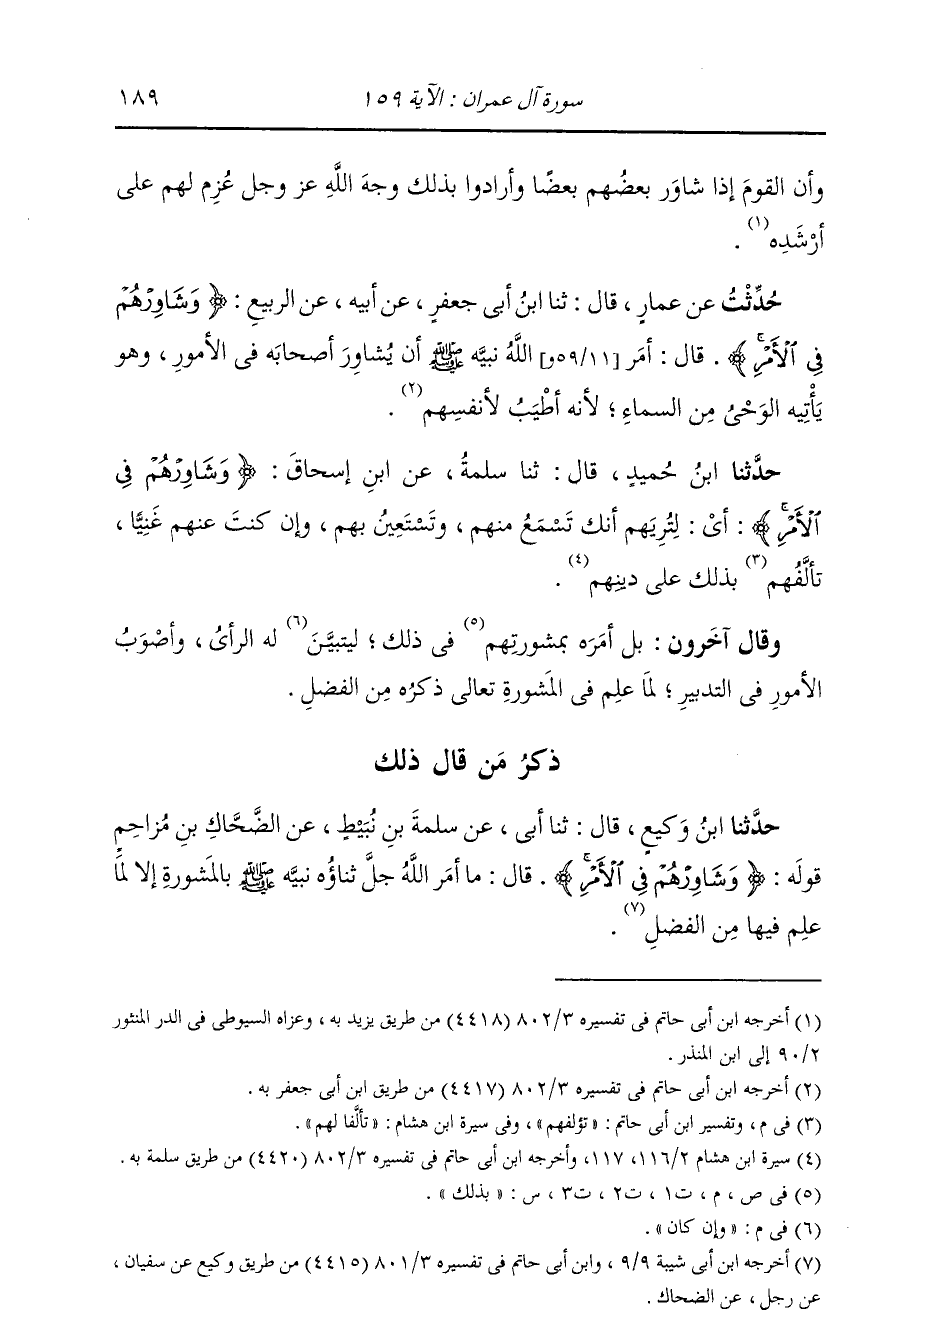 سورة آل عمران : الآية ١٥٩ ١٨٩
وأن القومَ إذا شاوَر بعضُهم بعضًا وأرادوا بذلك وجهَ اللَّهِ عز وجل عُزِم لهم على
أرْشَدِه(١) .
حُدِّثْتُ عن عمارٍ ، قال : ثنا ابنُ أبى جعفرٍ ، عن أبيه ، عن الربيعِ : ﴿ وَشَاوِرْهُمْ
فِي ٱلْأَمْرِۚ ﴾ . قال : أمَر [٥٩/١١و] اللَّهُ نبيَّه ﷺ أن يُشاوِرَ أصحابَه فى الأمورِ ، وهو
يَأْتِيه الوَحْىُ مِن السماءِ ؛ لأنه أطْيَبُ لأنفسِهم(٢) .
حدَّثنا ابنُ حُميدٍ ، قال : ثنا سلمةُ ، عن ابنِ إسحاقَ : ﴿ وَشَاوِرْهُمْ فِي
ٱلْأَمْرِۚ ﴾ : أىْ : لِتُرِيَهم أنك تَسْمَعُ منهم ، وتَسْتَعِينُ بهم ، وإن كنتَ عنهم غَنِيًّا ،
تألَّفُهم(٣) بذلك على دينِهم(٤) .
وقال آخَرون : بل أمَرَه بمشورتِهم(٥) فى ذلك ؛ ليتبيَّنَ(٦) له الرأىُ ، وأصْوَبُ
الأمورِ فى التدبيرِ ؛ لمَا علِم فى المَشورةِ تعالى ذكرُه مِن الفضلِ .
ذكرُ مَن قال ذلك
حدَّثنا ابنُ وَكيعٍ ، قال : ثنا أبى ، عن سلمةَ بنِ نُبَيْطٍ ، عن الضَّحَّاكِ بنِ مُزاحِمٍ
قولَه : ﴿ وَشَاوِرْهُمْ فِي ٱلْأَمْرِۚ ﴾ . قال : ما أمَر اللَّهُ جلَّ ثناؤُه نبيَّه ﷺ بالمَشورةِ إلا لمَا
علِم فيها مِن الفضلِ(٧) .
(١) أخرجه ابن أبى حاتم فى تفسيره ٨٠٢/٣ (٤٤١٨) من طريق يزيد به ، وعزاه السيوطى فى الدر المنثور
٩٠/٢ إلى ابن المنذر .
(٢) أخرجه ابن أبى حاتم فى تفسيره ٨٠٢/٣ (٤٤١٧) من طريق ابن أبى جعفر به .
(٣) فى م ، وتفسير ابن أبى حاتم : «تؤلفهم» ، وفى سيرة ابن هشام : «تألُّفا لهم» .
(٤) سيرة ابن هشام ١١٦/٢، ١١٧، وأخرجه ابن أبى حاتم فى تفسيره ٨٠٢/٣ (٤٤٢٠) من طريق سلمة به .
(٥) فى ص ، م ، ت١ ، ت٢ ، ت٣ ، س : « بذلك » .
(٦) فى م : « وإن كان » .
(٧) أخرجه ابن أبى شيبة ٩/٩ ، وابن أبى حاتم فى تفسيره ٨٠١/٣ (٤٤١٥) من طريق وكيع عن سفيان ،
عن رجل ، عن الضحاك .